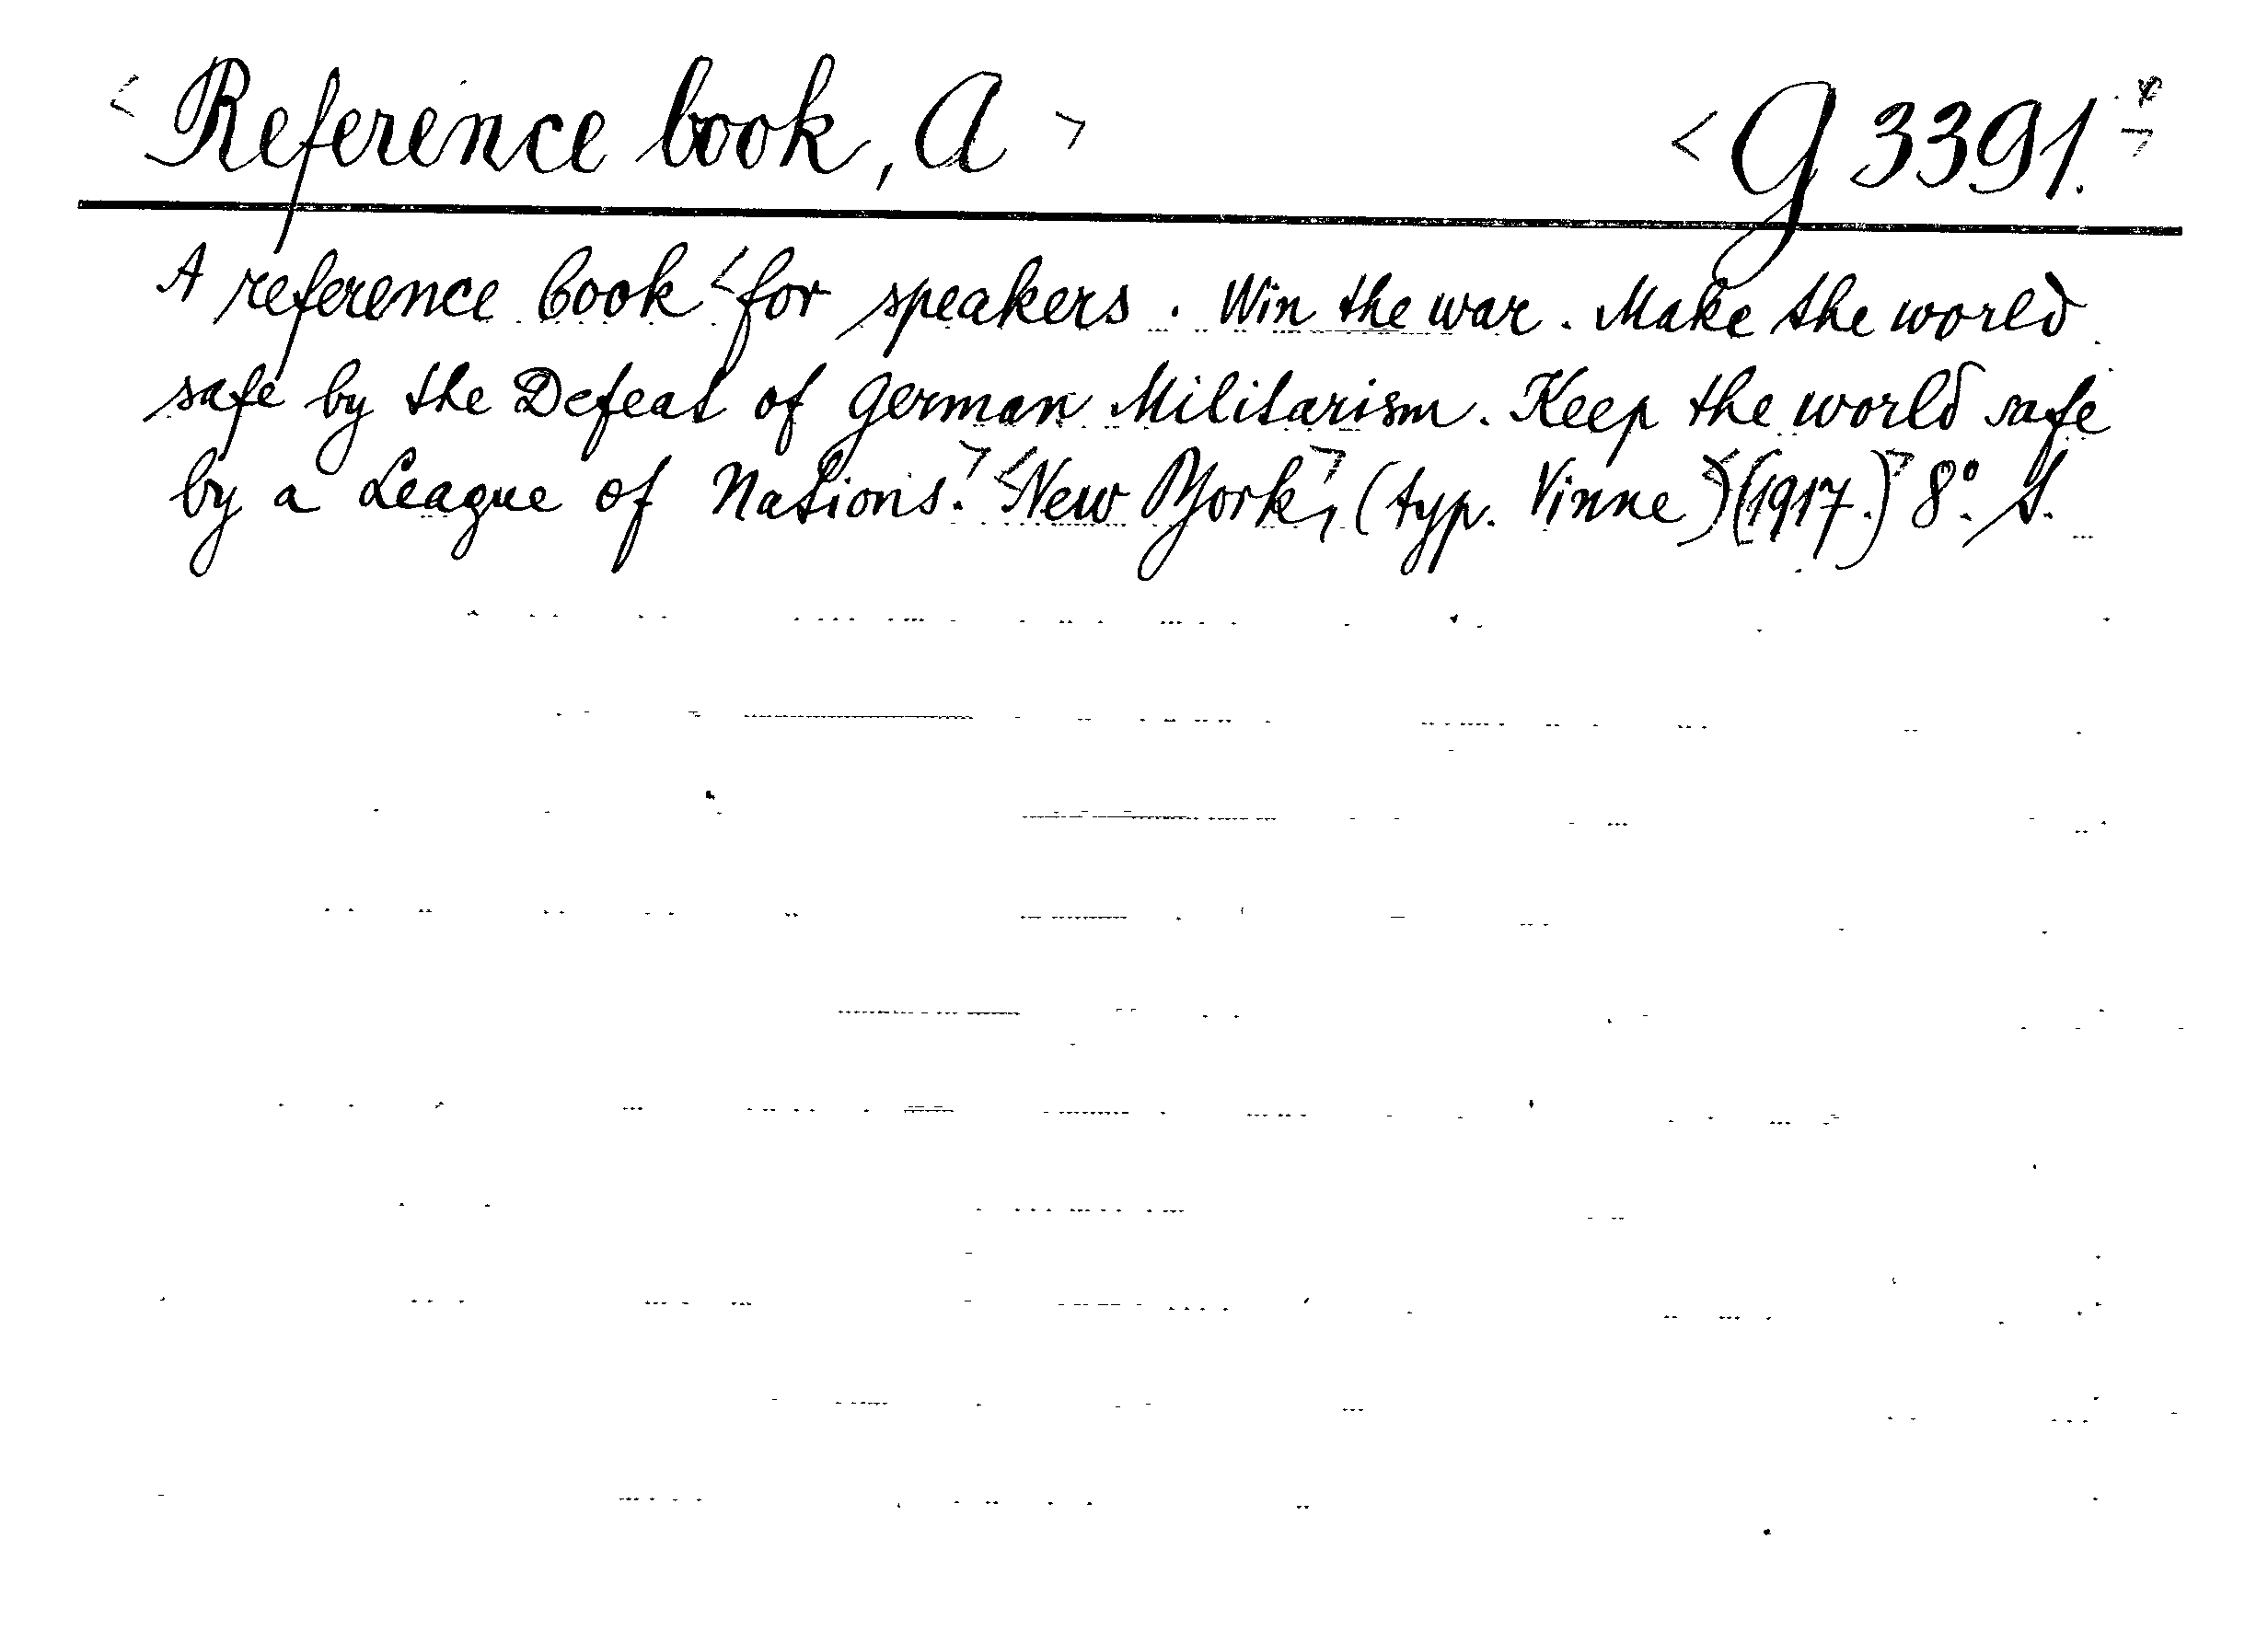 < Reference book, A >
< G 3391. >
A reference book < for speakers. Win the war. Make the world
safe by the Defeat of German Militarism. Keep the world safe
by a League of Nations. > < New York, > (typ. Vinne) < (1917.) > 8°. S.